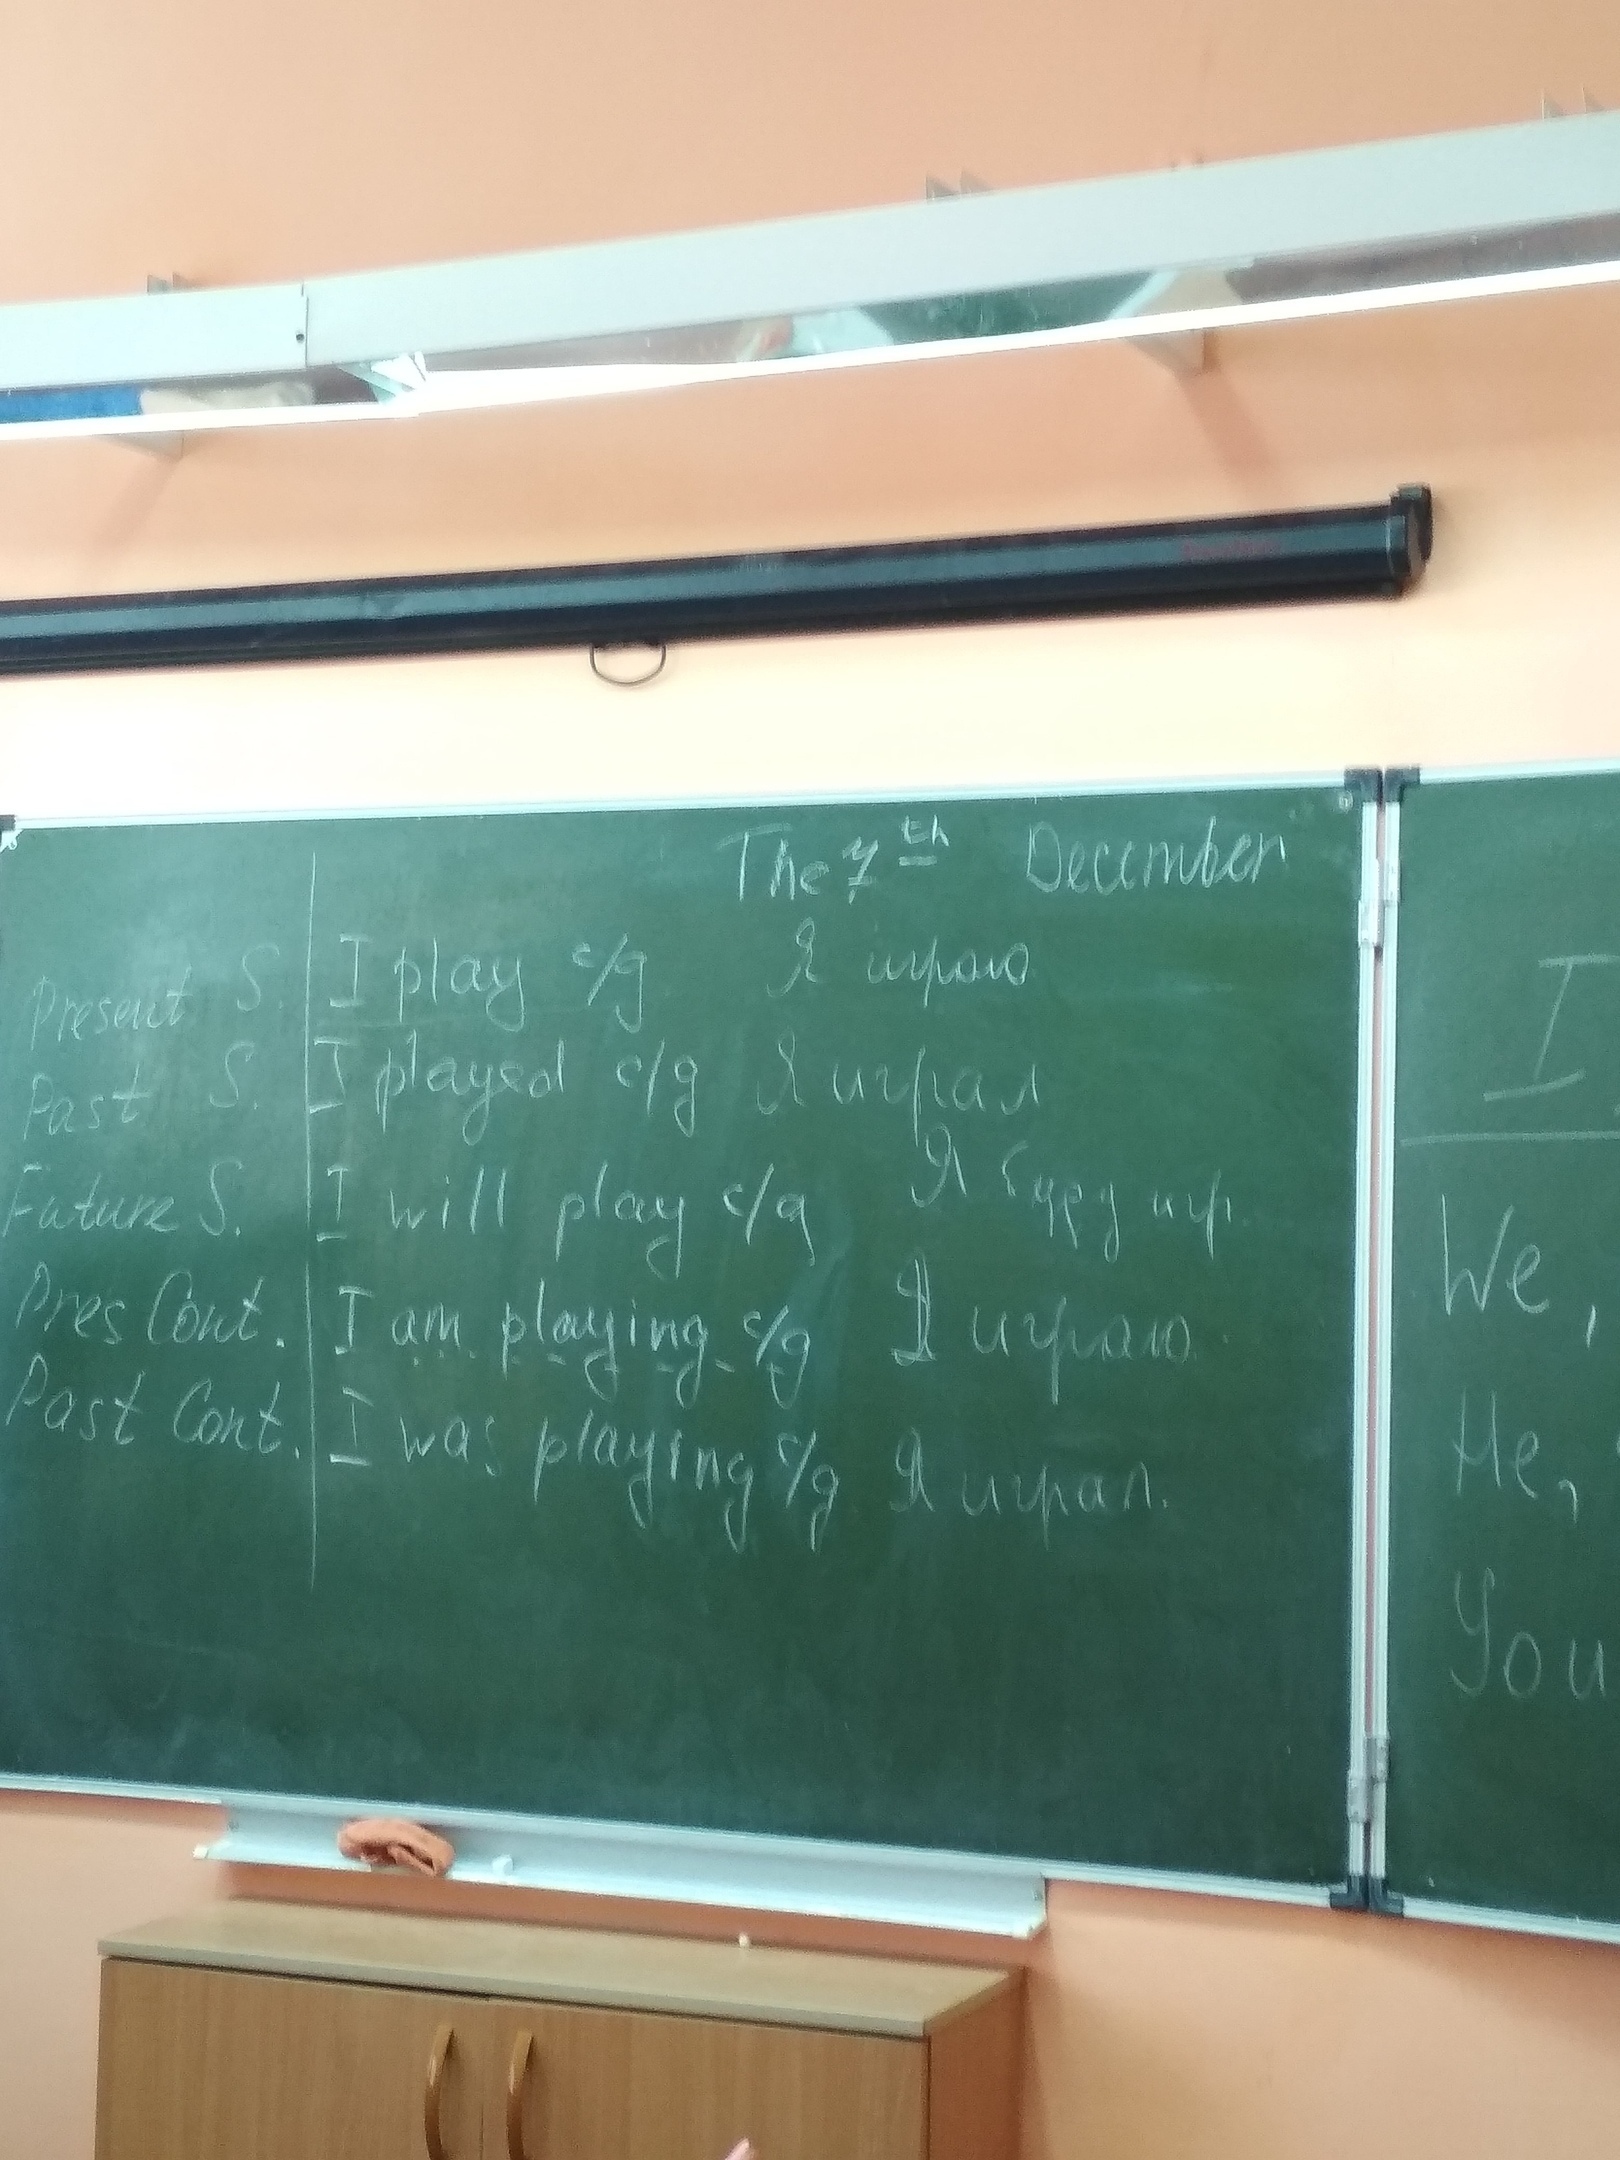 The 7th December
Present S. I play c/g Я играю
Past S. I played c/g Я играл
Future S. I will play c/g Я буду игр.
Pres Cont. I am playing c/g Я играю.
Past Cont. I was playing c/g Я играл.
I
We,
He,
You